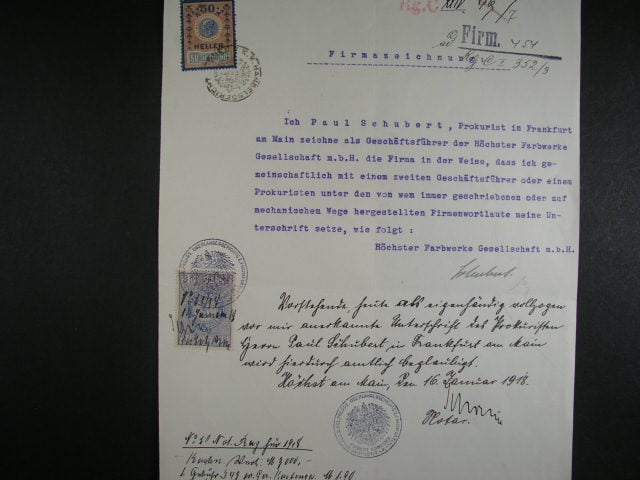 50
HELLER
HANDELSGERICHT
Rg. C
ad Firm. 454
Rg. C I 352/3
Firmazeichnung
Ich Paul Schubert, Prokurist in Frankfurt
am Main zeichne als Geschäftsführer der Höchster Farbwerke
Gesellschaft m.b.H. die Firma in der Weise, dass ich ge-
meinschaftlich mit einem zweiten Geschäftsführer oder einem
Prokuristen unter den von wem immer geschriebenen oder auf
mechanischem Wege hergestellten Firmenwortlaute meine Un-
terschrift setze, wie folgt :
Höchster Farbwerke Gesellschaft m.b.H.
Schubert.
Vorstehende, heute als eigenhändig vollzogen
vor mir anerkannte Unterschrift des Prokuristen
Herrn Paul Schubert in Frankfurt am Main
wird hierdurch amtlich beglaubigt.
Höchst am Main, den 16. Januar 1918.
Notar.
No 50 Not. Reg für 1918
M 3000,-
M 1.90